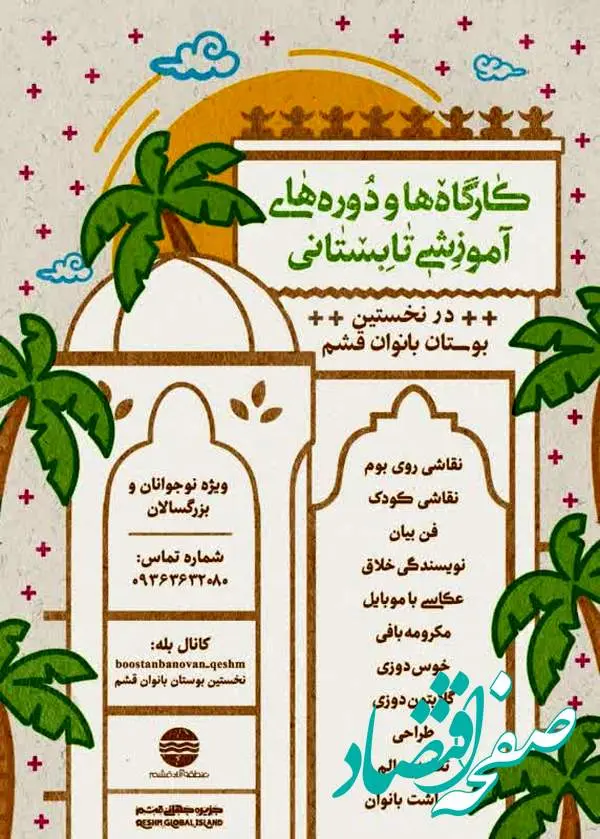 کارگاه‌ها و دُوره‌های
آموزِشی تابِستانی
در نخستین
بوستان بانوان قشم
نقاشی روی بوم
نقاشی کودک
فن بیان
نویسندگی خلاق
عکاسی با موبایل
مکرومه بافی
خوس دوزی
دوزی
طراحی
بانوان
ویژه نوجوانان و
بزرگسالان
شماره تماس:
۰۹۳۶۳۶۳۲۰۸۰
کانال بله:
boostanbanovan_qeshm
نخستین بوستان بانوان قشم
منطقه آزاد قشم
جزیره جهانی قشم
QESHM GLOBAL ISLAND
صفحه اقتصاد